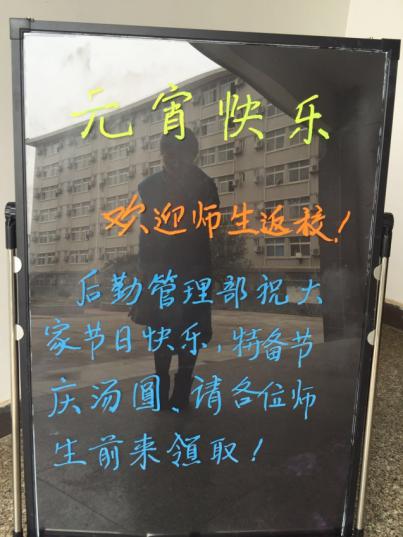 元宵快乐
欢迎师生返校！
后勤管理部祝大
家节日快乐，特备节
庆汤圆、请各位师
生前来領取！